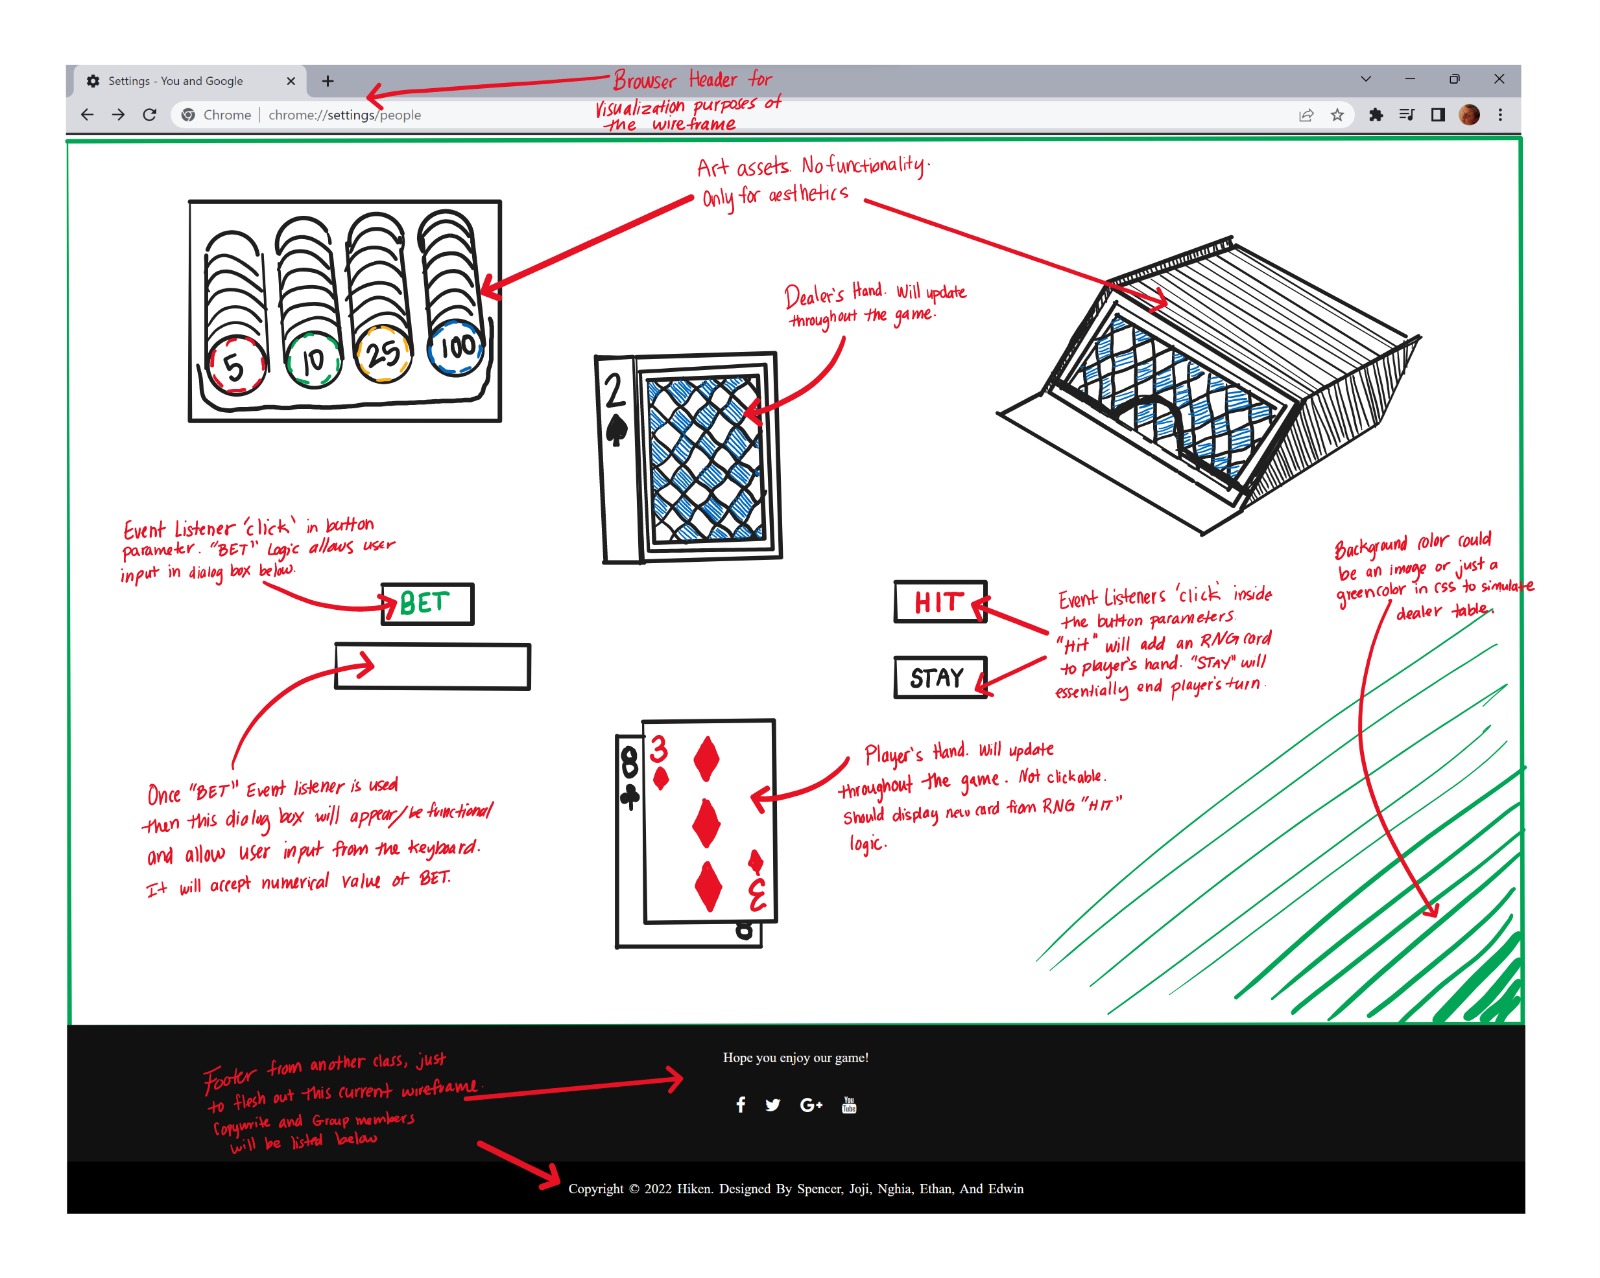 Settings - You and Google
Chrome
chrome://settings/people
Browser Header for
Visualization purposes of
the wireframe
Art assets. No functionality.
Only for aesthetics
5
10
25
100
Dealer's Hand. Will update
throughout the game.
2
Event Listener 'click' in button
parameter. "BET" Logic allows user
input in dialog box below.
BET
HIT
STAY
Event Listeners 'click' inside
the button parameters.
"Hit" will add an RNG card
to player's hand. "STAY" will
essentially end player's turn.
Background color could
be an image or just a
green color in css to simulate
dealer table.
Once "BET" Event listener is used
then this dialog box will appear/be functional
and allow user input from the keyboard.
It will accept numerical value of BET.
8
3
3
8
Player's Hand. Will update
throughout the game. Not clickable.
Should display new card from RNG "HIT"
logic.
Footer from another class, just
to flesh out this current wireframe.
Copywrite and Group members
will be listed below
Hope you enjoy our game!
f
G+
You
Tube
Copyright © 2022 Hiken. Designed By Spencer, Joji, Nghia, Ethan, And Edwin